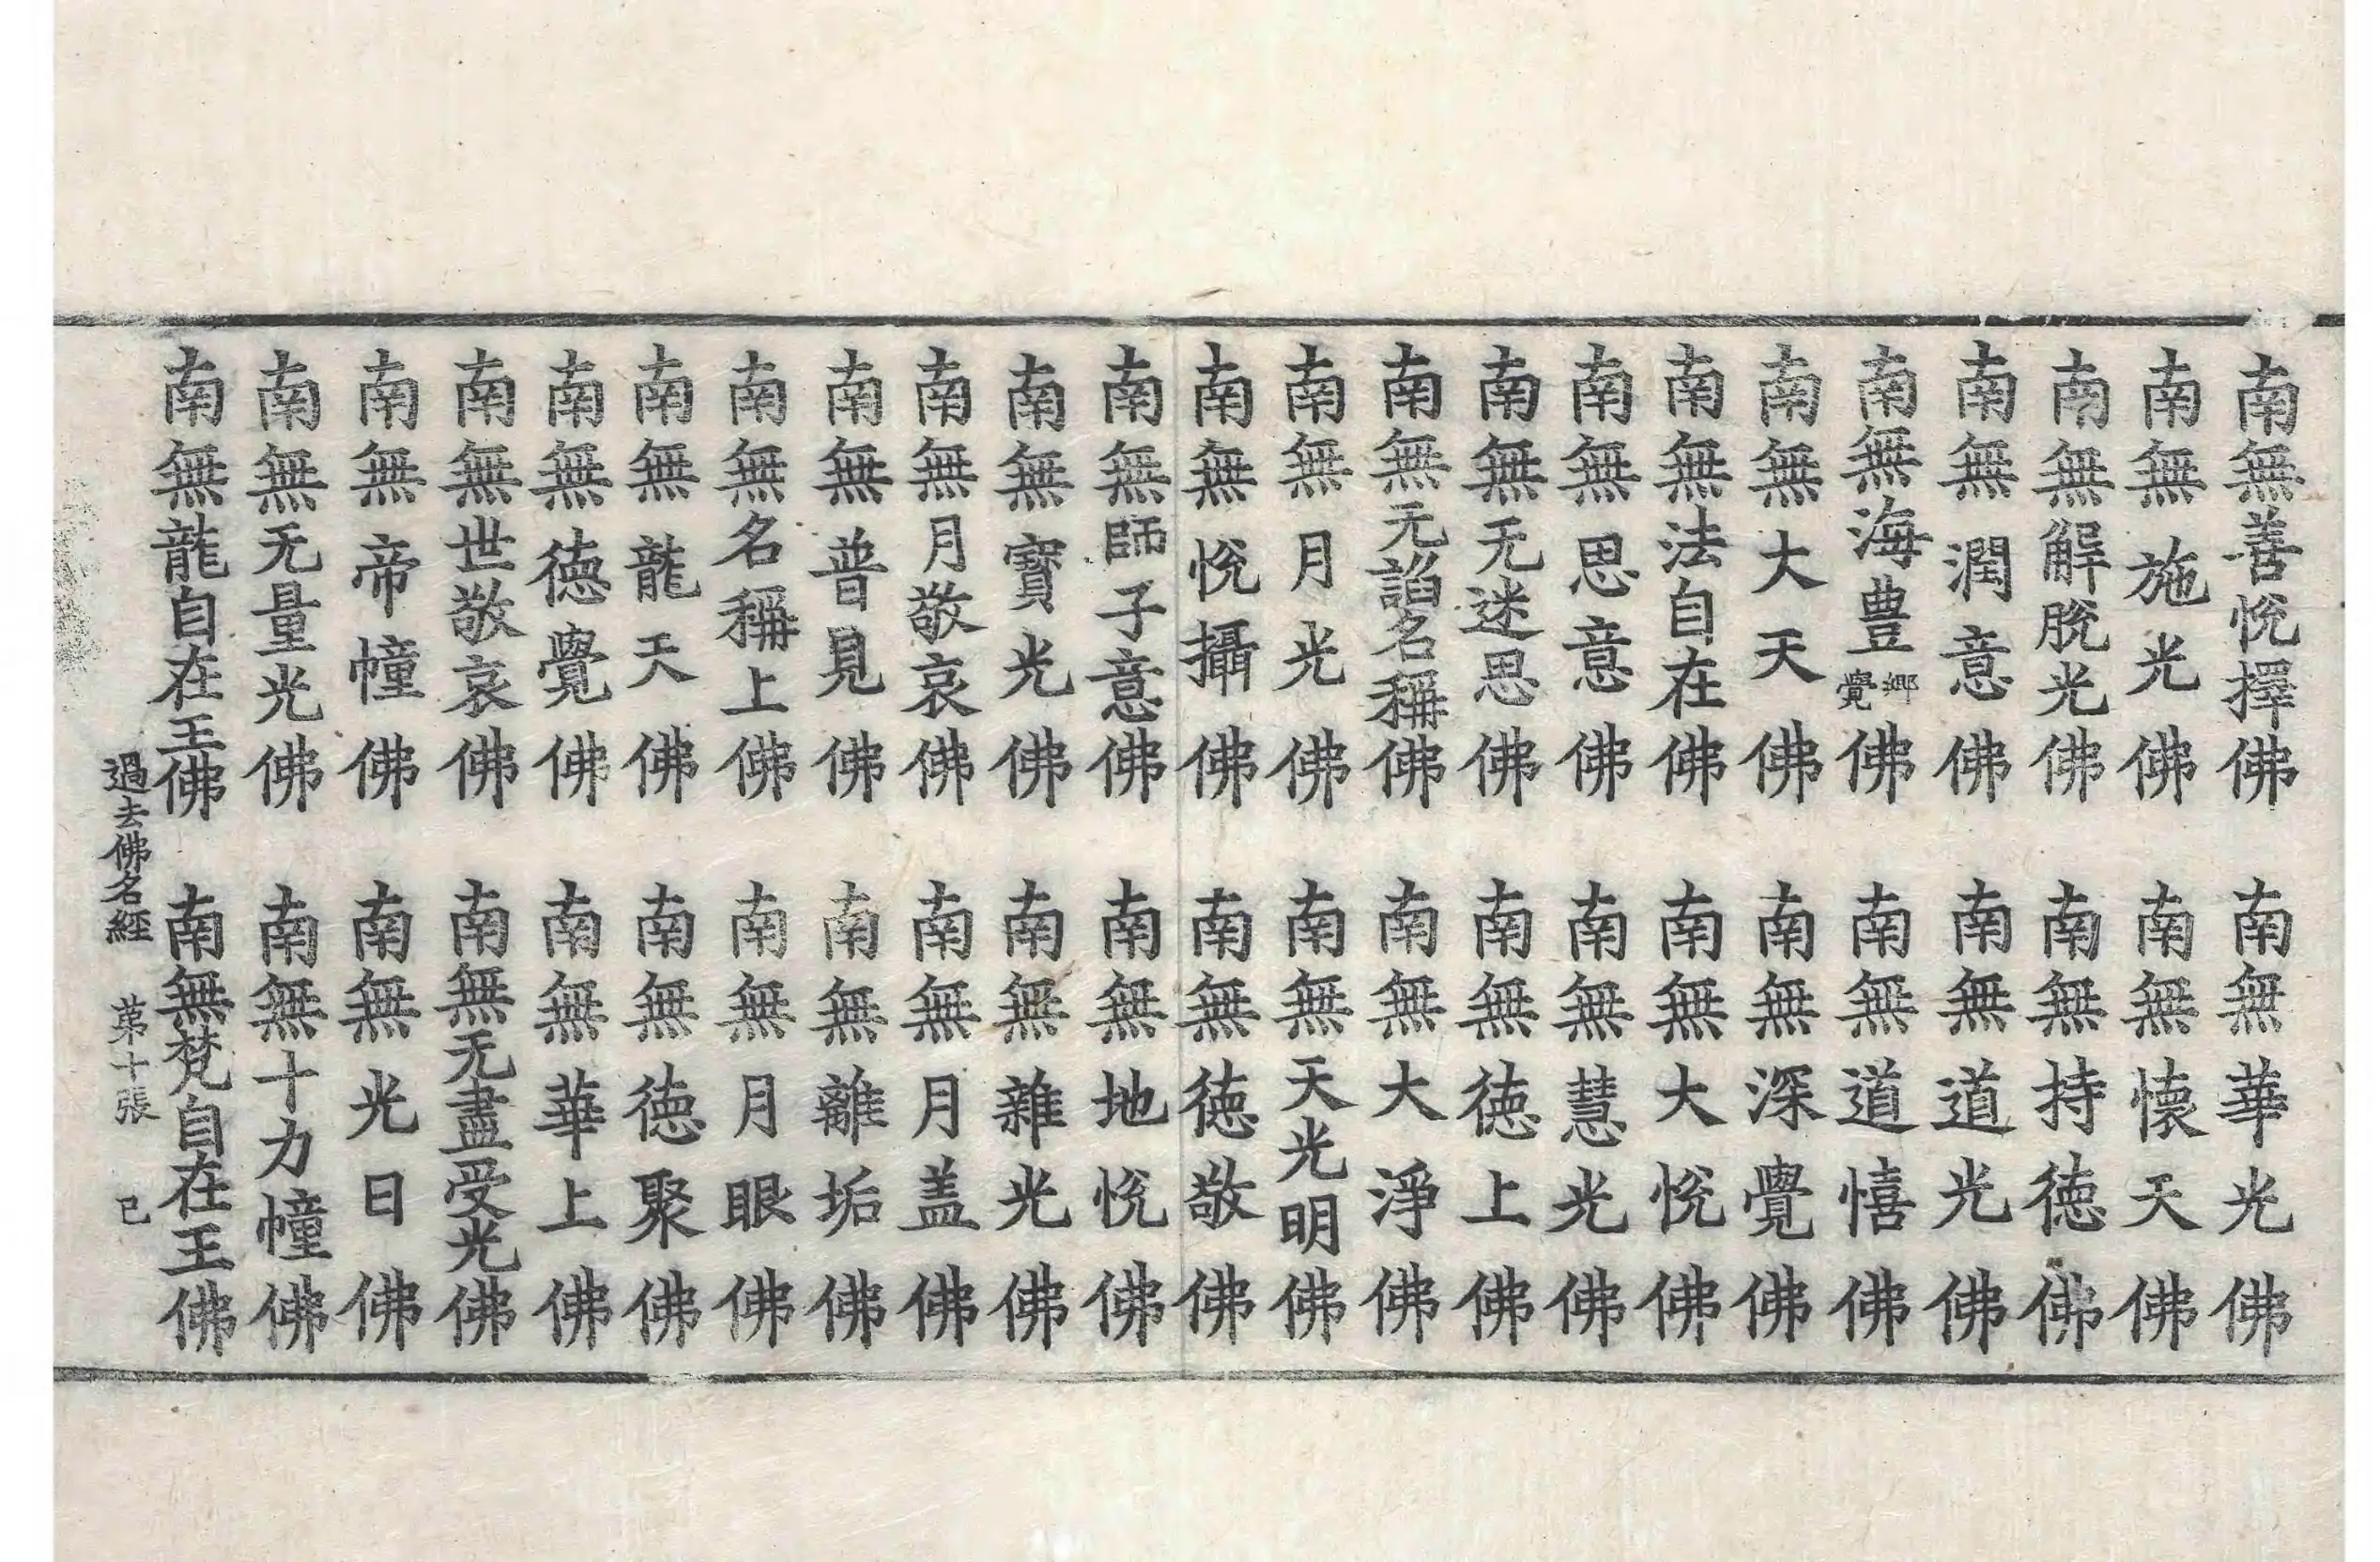 南無善悅擇佛　南無華光佛
南無施光佛　南無懷天佛
南無解脫光佛　南無持徳佛
南無潤意佛　南無道光佛
南無海豊鄉覺佛　南無道憘佛
南無大天佛　南無深覺佛
南無法自在佛　南無大悅佛
南無思意佛　南無慧光佛
南無无迷思佛　南無徳上佛
南無无諂名稱佛　南無大淨佛
南無月光佛　南無天光明佛
南無悅攝佛　南無徳敬佛
南無師子意佛　南無地悅佛
南無寶光佛　南無雜光佛
南無月敬哀佛　南無月盖佛
南無普見佛　南無離垢佛
南無名稱上佛　南無月眼佛
南無龍天佛　南無徳聚佛
南無徳覺佛　南無華上佛
南無世敬哀佛　南無无盡受光佛
南無帝幢佛　南無光日佛
南無无量光佛　南無十力幢佛
南無龍自在王佛　南無梵自在王佛
過去佛名經　苐十張　已